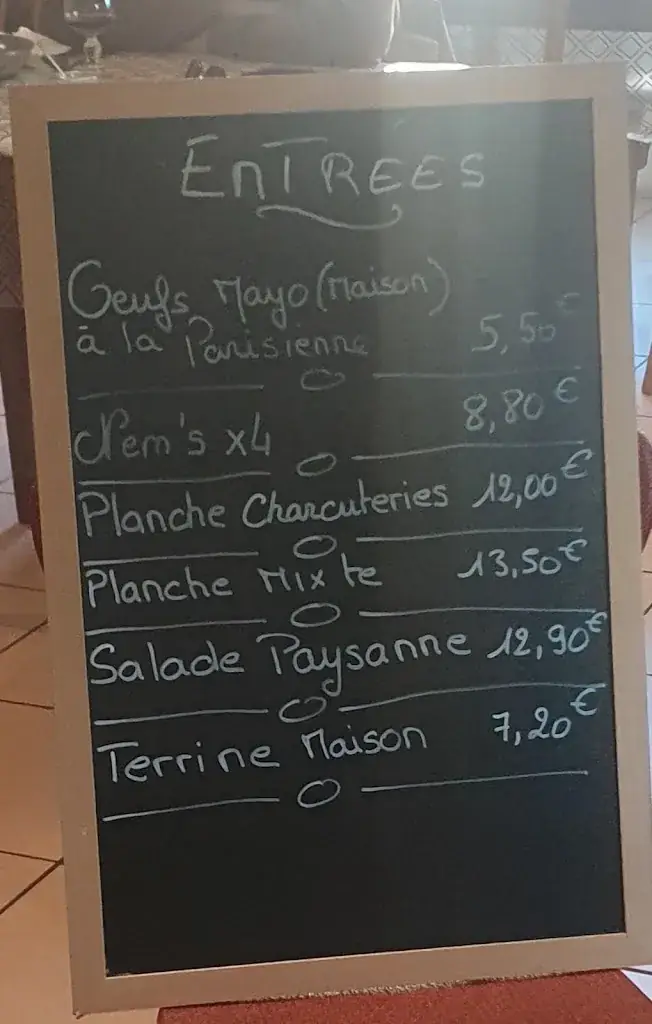 EnTREES
Oeufs Mayo (Maison)
à la Parisienne 5,50 €
Nem's x4 8,80 €
Planche Charcuteries 12,00 €
Planche Mixte 13,50 €
Salade Paysanne 12,90 €
Terrine Maison 7,20 €